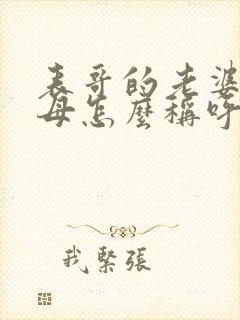 表哥的老婆
母怎麼稱呼
我緊張